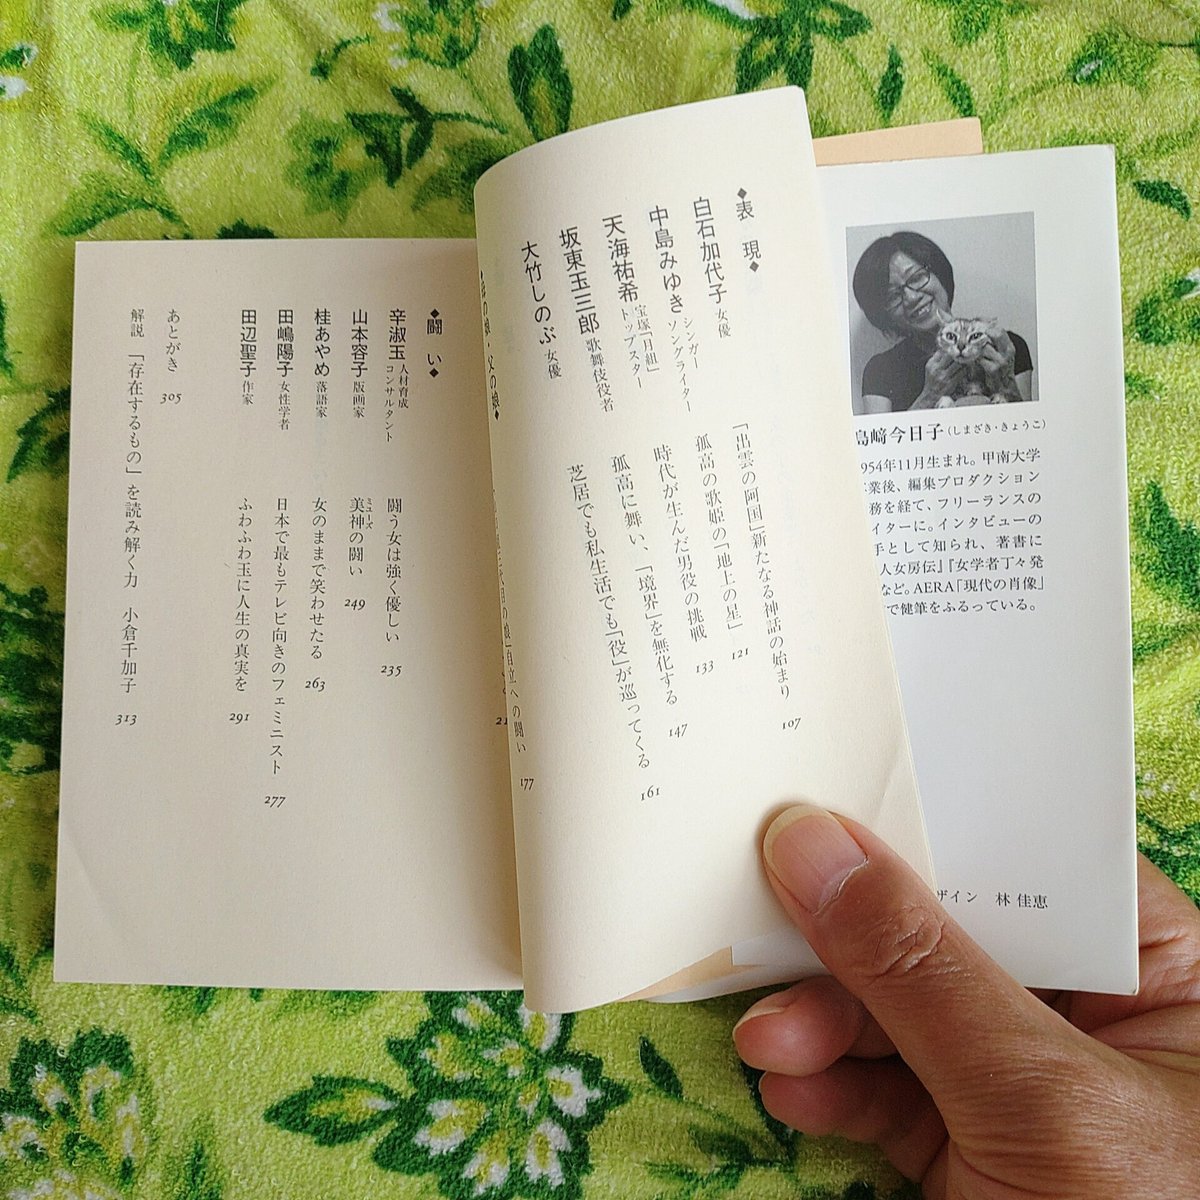 島﨑今日子(しまざき・きょうこ)
954年11月生まれ。甲南大学
業後、編集プロダクション
務を経て、フリーランスの
イターに。インタビューの
手として知られ、著書に
人女房伝』『女学者丁々発
など。AERA「現代の肖像」
で健筆をふるっている。
ザイン 林 佳恵
◆表 現◆
白石加代子 女優 「出雲の阿国」新たなる神話の始まり 107
中島みゆき シンガーソングライター 孤高の歌姫の「地上の星」 121
天海祐希 宝塚「月組」トップスター 時代が生んだ男役の挑戦 133
坂東玉三郎 歌舞伎役者 孤高に舞い、「境界」を無化する 147
大竹しのぶ 女優 芝居でも私生活でも「役」が巡ってくる 161
の娘・父の娘◆
代目の娘」自立への闘い 177
◆闘 い◆
辛淑玉 人材育成コンサルタント 闘う女は強く優しい 235
山本容子 版画家 美神の闘い ミューズ 249
桂あやめ 落語家 女のままで笑わせたる 263
田嶋陽子 女性学者 日本で最もテレビ向きのフェミニスト 277
田辺聖子 作家 ふわふわ玉に人生の真実を 291
あとがき 305
解説 「存在するもの」を読み解く力 小倉千加子 313